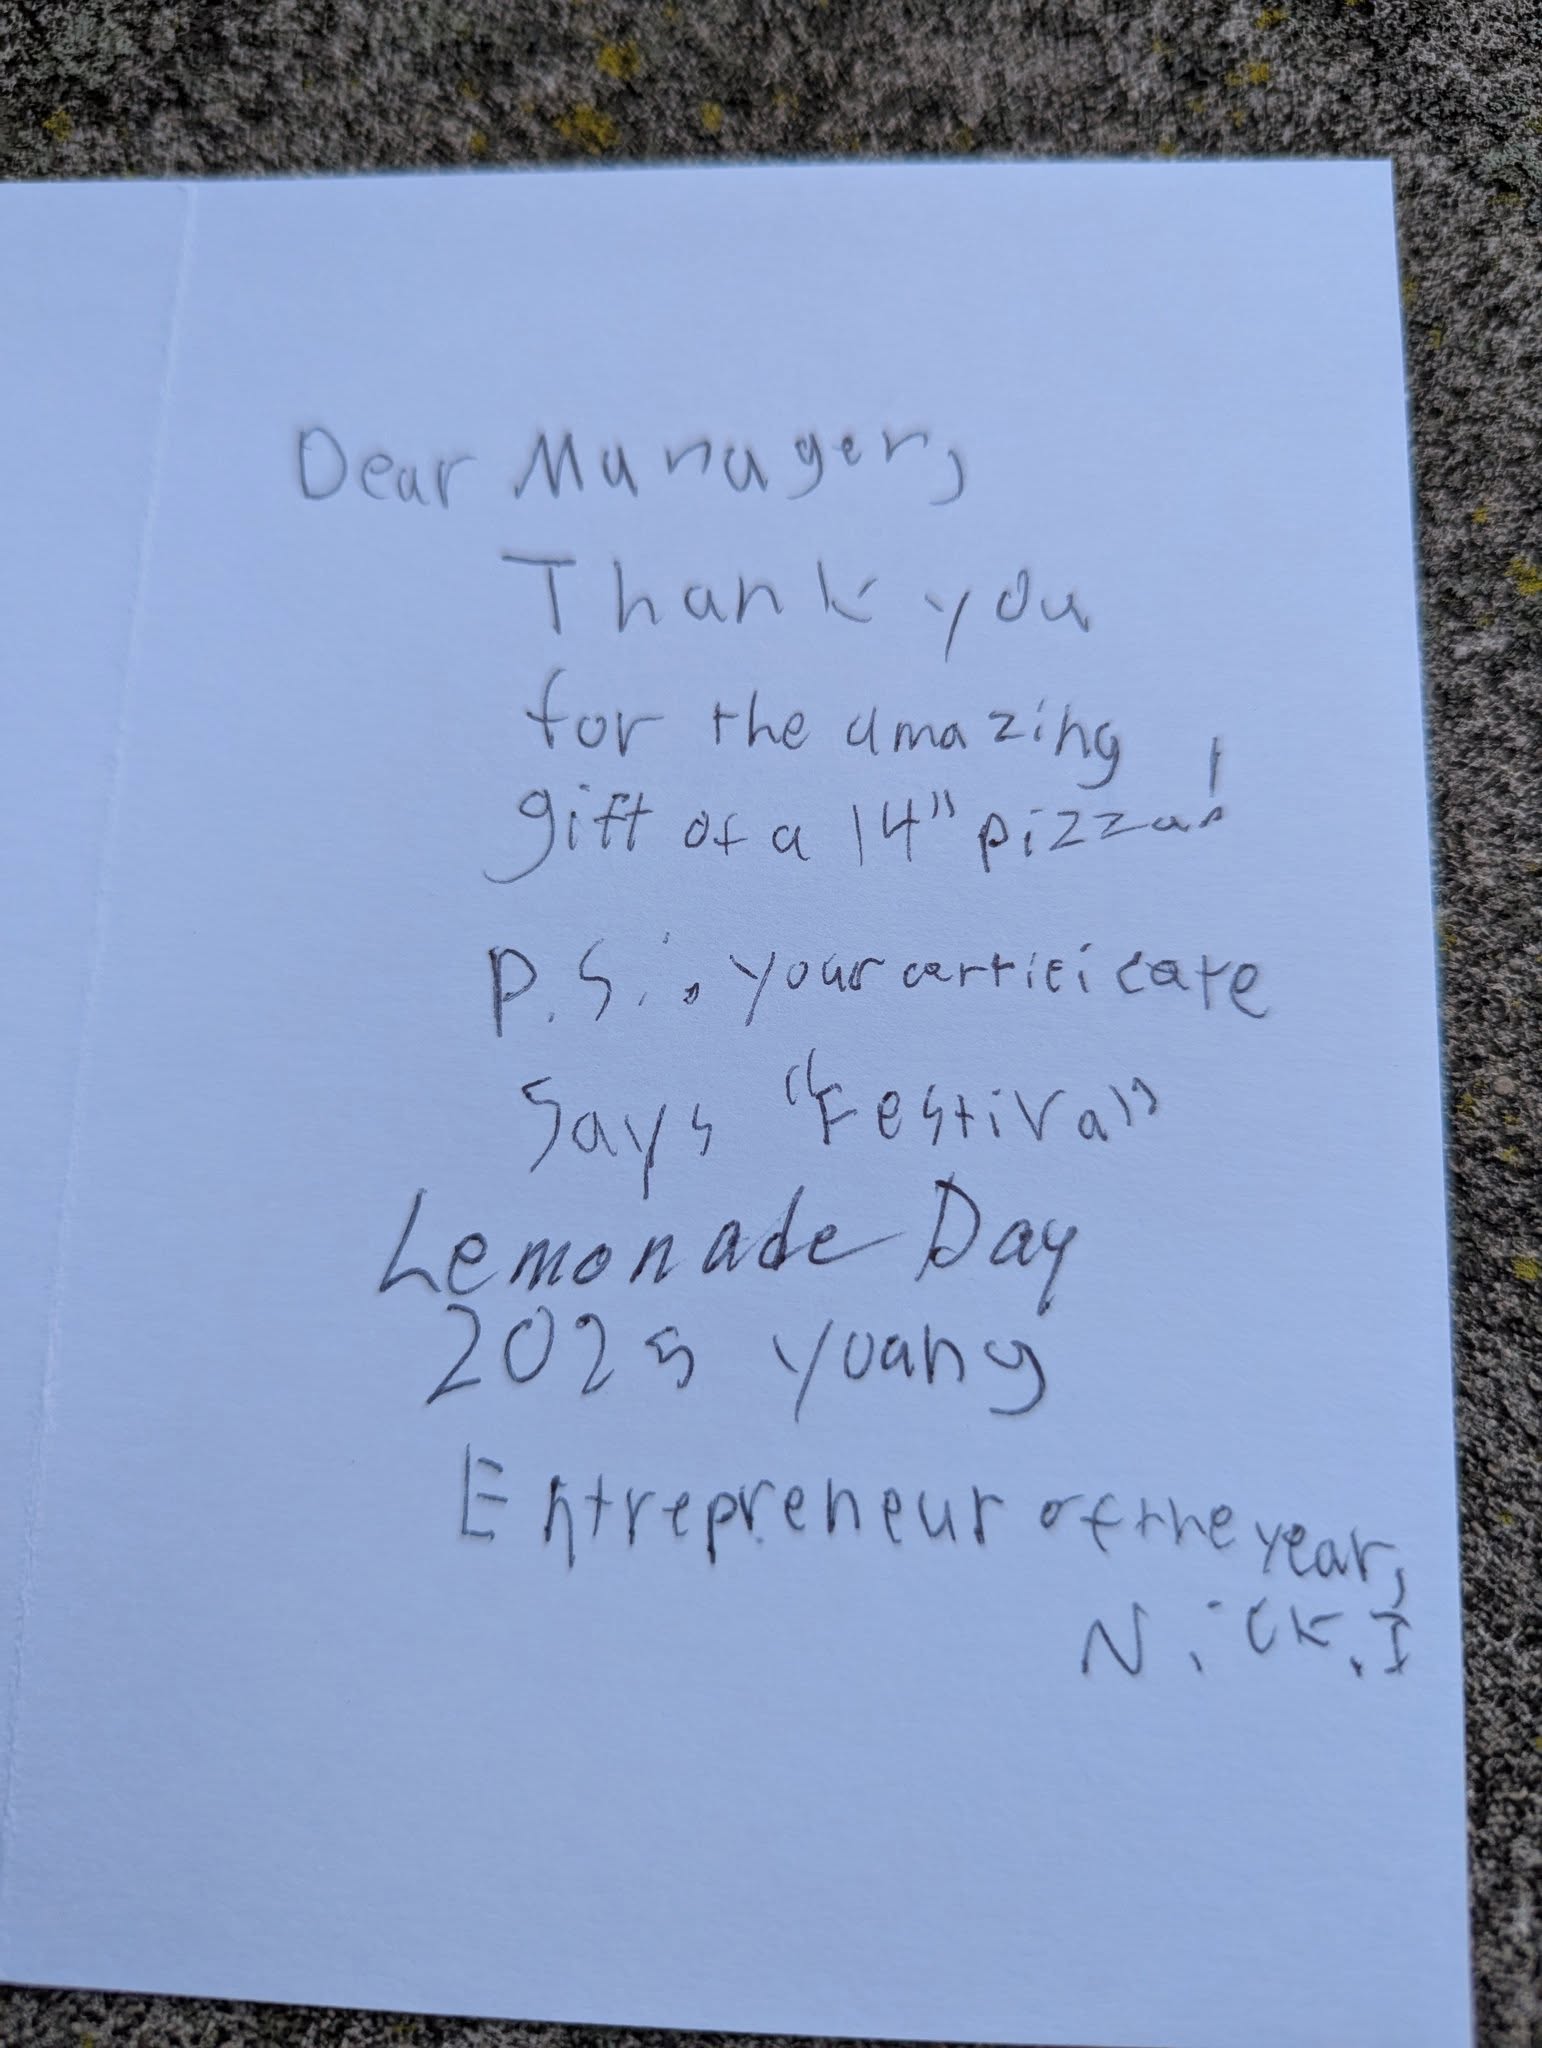 Dear Manager,
Thank you
for the amazing
gift of a 14" pizza!
P.S.: your certificate
says "Festival"
Lemonade Day
2025 yoang
Entrepreneur of the year,
Nick.I